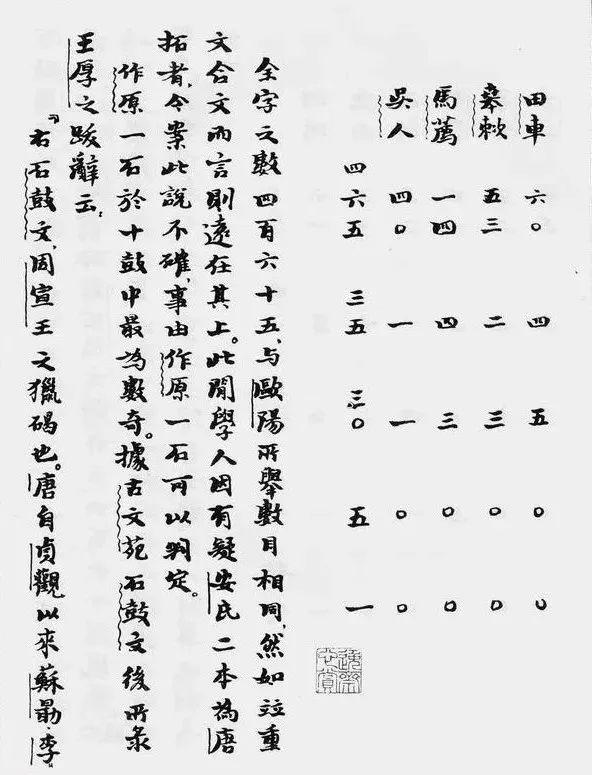 田車 六〇 四 五 〇 〇
五三 二 三 〇 〇
馬薦 一四 四 三 〇 〇
吳人 四〇 一 一 〇 〇
四六五 三五 三〇 五 一
全字之數四百六十五,与歐陽所舉數目相同,然如竝重
文合文而言則遠在其上。此閒學人因有疑安氏二本為唐
拓者,今案此說不確,事由作原一石可以判定。
作原一石於十鼓中最為數奇。據古文苑石鼓文後所录
王厚之跋辭云:
『右石鼓文,周宣王之獵碣也。唐自貞觀以來蘇勗、李